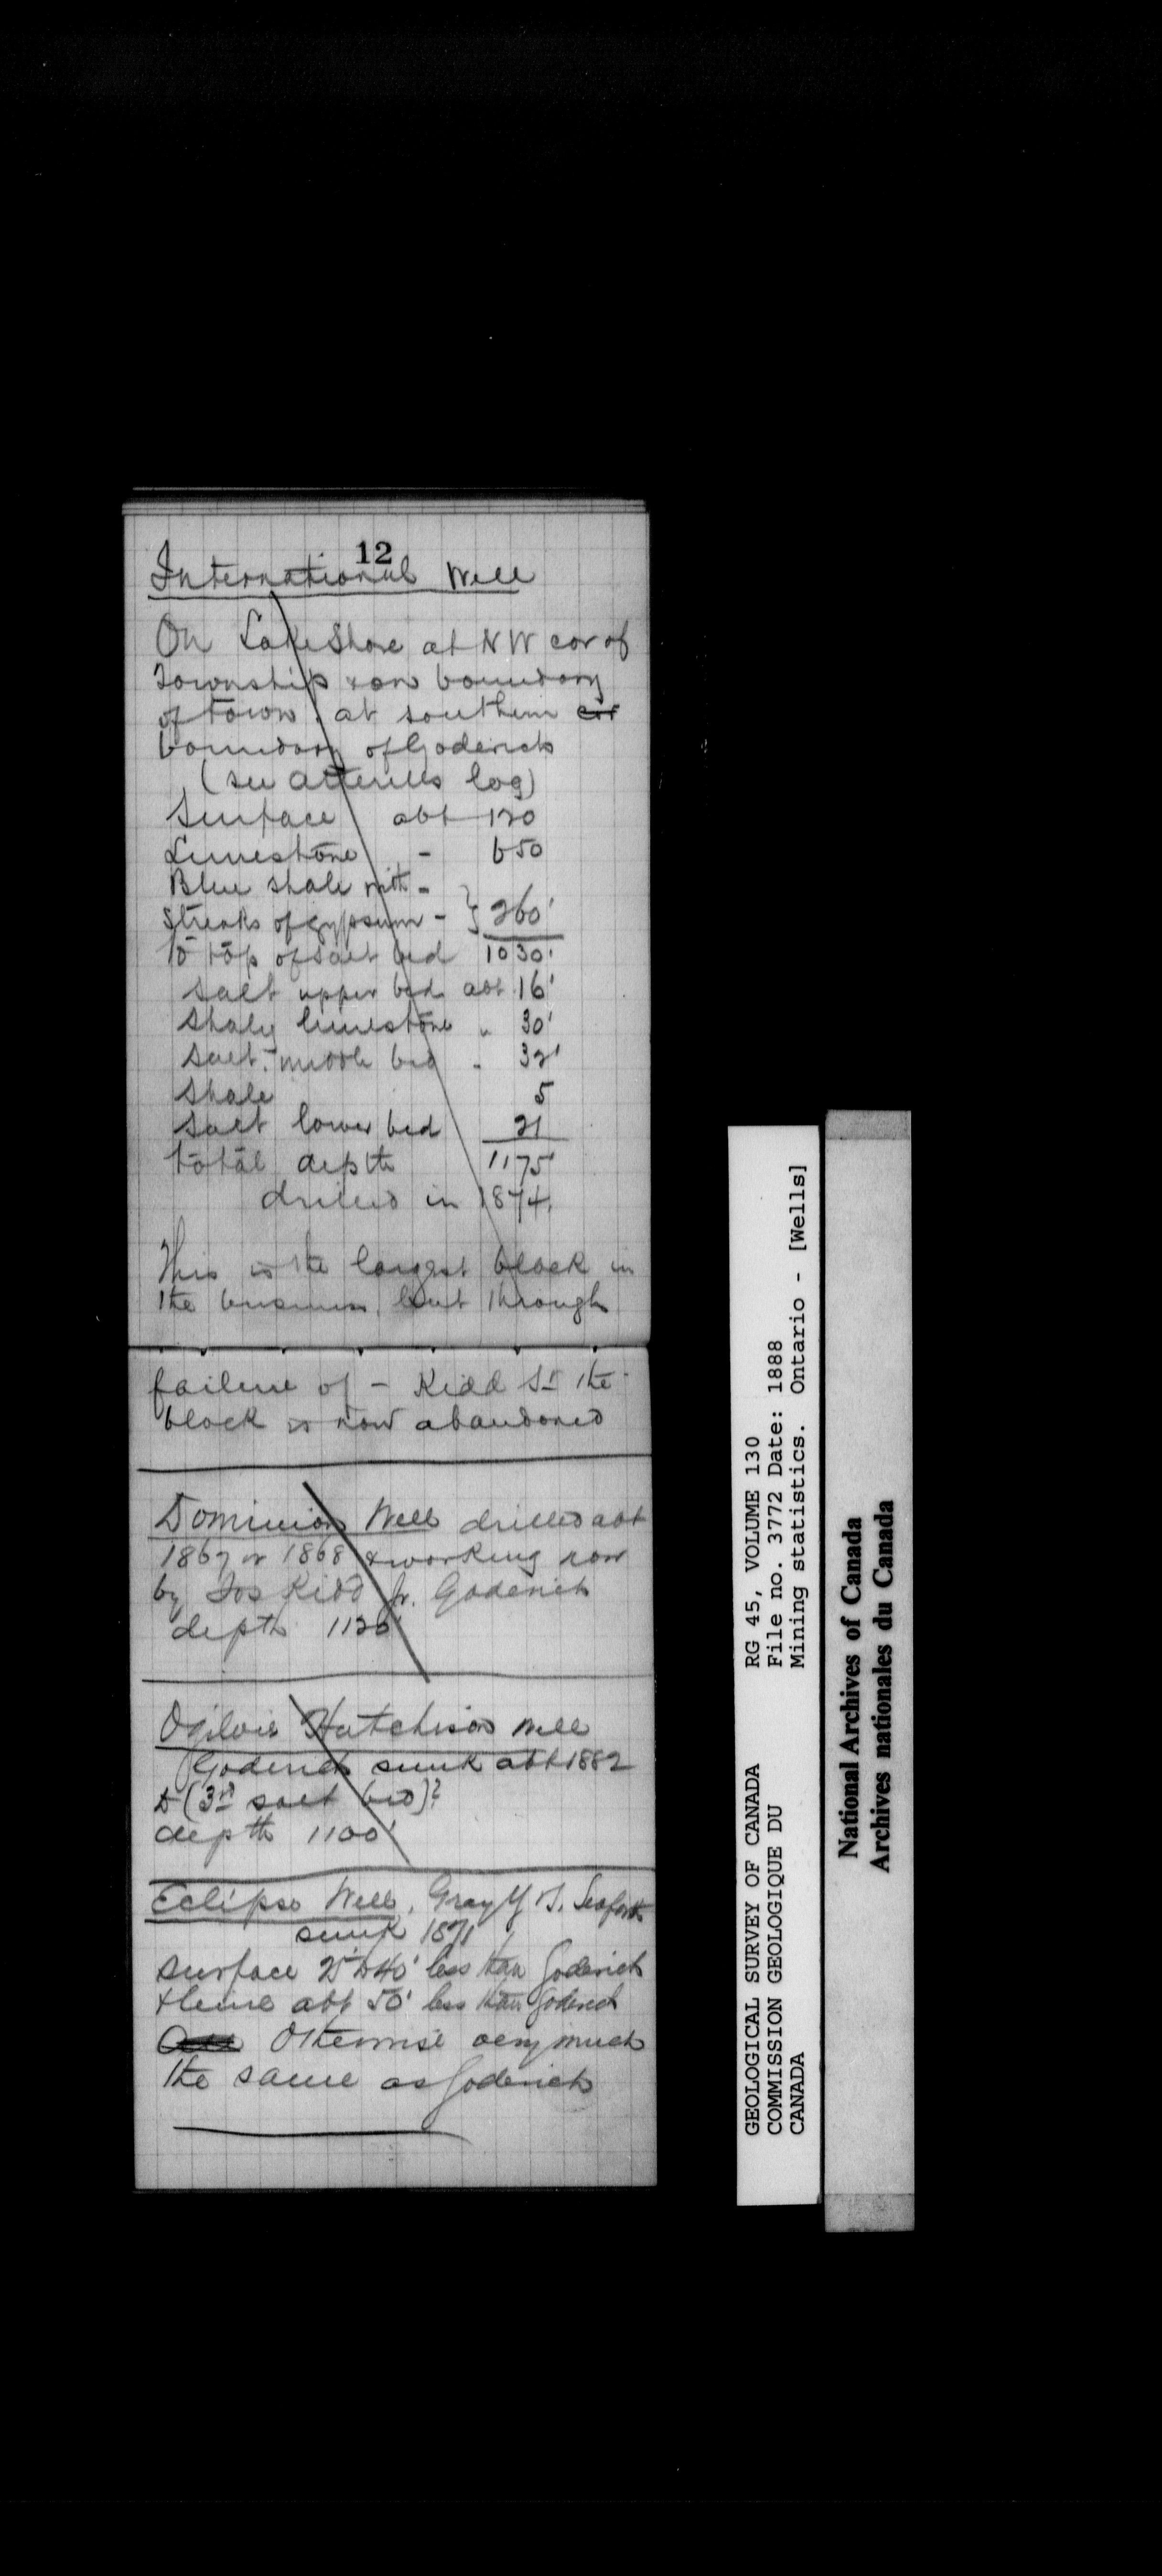 12
International Well
On Lake Shore at NW cor of
Township & on boundary
of town, at southern cor
boundary of Goderich
(see Attrills log)
Surface abt 120
Limestone - 650
Blue shale with -
Streaks of gypsum - } 260'
to top of salt bed 1030'
Salt upper bed abt 16'
Shaly limestone " 30'
Salt, middle bed " 32'
Shale 5
Salt lower bed 21
total depth 1175'
drilled in 1874.
This is the largest block in
the business, but through
failure of - Kidd Sr the
block is now abandoned
Dominion Well drilled abt
1867 or 1868 & working now
by Jos Kidd Jr. Goderich
depth 1120'
Ogilvie Hutchison Well
Goderich sunk abt 1882
to (3rd salt bed)?
depth 1100'
Eclipse Well, Gray Y & S, Seaforth
sunk 1871
Surface 25 to 40' less than Goderich
& lime abt 50' less than Goderich
Otherwise very much
the same as Goderich
GEOLOGICAL SURVEY OF CANADA
COMMISSION GEOLOGIQUE DU
CANADA
RG 45, VOLUME 130
File no. 3772 Date: 1888
Mining statistics. Ontario - [Wells]
National Archives of Canada
Archives nationales du Canada